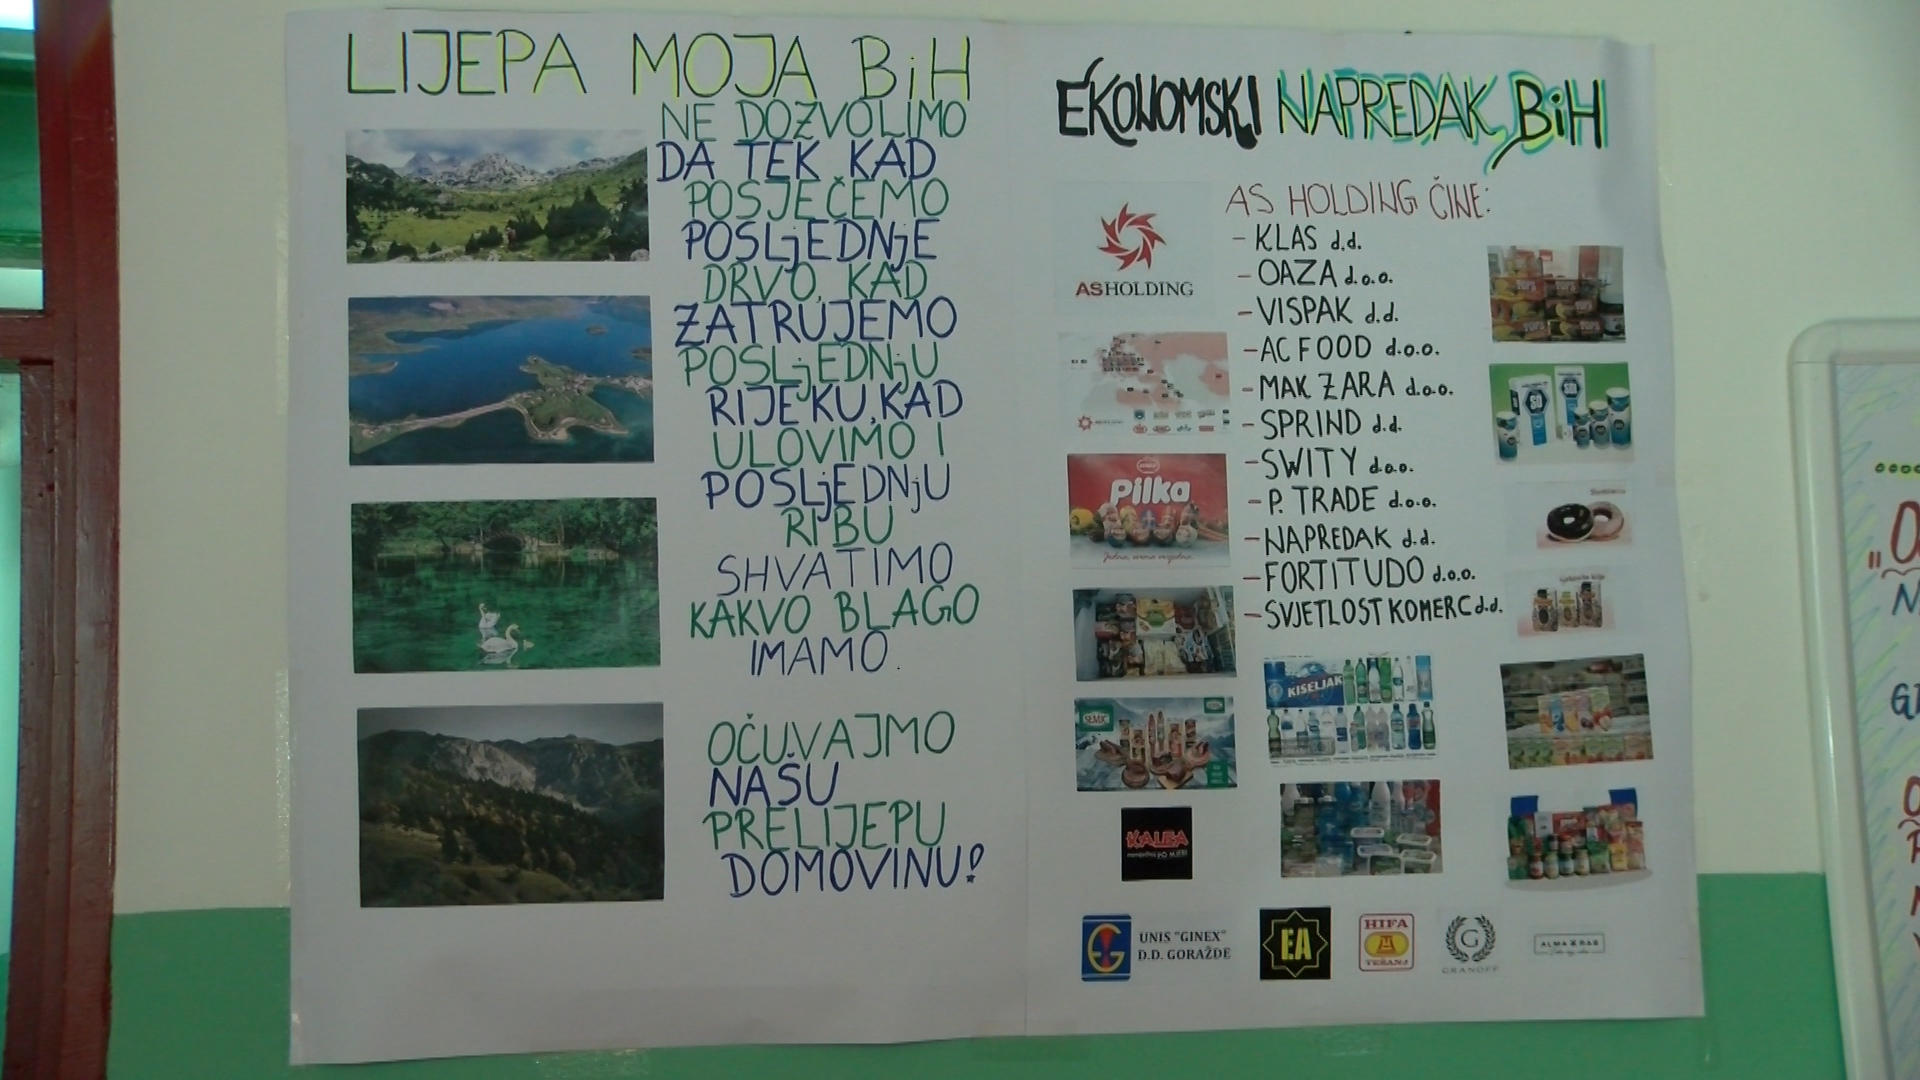 LIJEPA MOJA BiH
NE DOZVOLIMO
DA TEK KAD
POSJEČEMO
POSLjEDNjE
DRVO, KAD
ZATRUJEMO
POSLjEDNjU
RIJEKU, KAD
ULOVIMO I
POSLjEDNjU
RIBU
SHVATIMO
KAKVO BLAGO
IMAMO.
OČUVAJMO
NAŠU
PRELIJEPU
DOMOVINU!
EKONOMSKI NAPREDAK BiH
ASHOLDING
AS HOLDING ČINE:
- KLAS d.d.
- OAZA d.o.o.
- VISPAK d.d.
- AC FOOD d.o.o.
- MAK ZARA d.o.o.
- SPRIND d.d.
- SWITY d.o.o.
- P. TRADE d.o.o.
- NAPREDAK d.d.
- FORTITUDO d.o.o.
- SVJETLOST KOMERC d.d.
Pilka
SEMIĆ
KISELJAK
KALEA
UNIS "GINEX"
D.D. GORAŽDE
EA
HIFA
TEŠANJ
G
GRANOFF
ALMA RAS